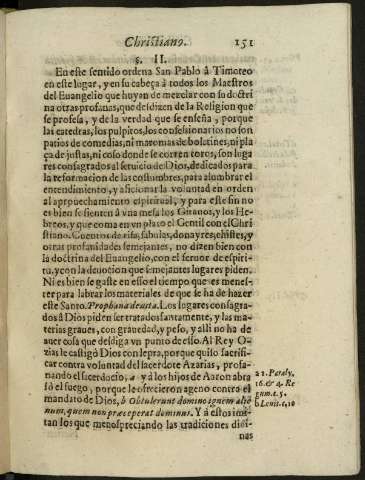 Christiano. 151
§. II.
En este sentido ordena San Pablo à Timoteo
en este lugar, y en su cabeça à todos los Maestros
del Euangelio que huyan de mezclar con su doctri
na otras profanas, que desdizen de la Religion que
se profesa, y de la verdad que se enseña, porque
las catedras, los pulpitos, los confesionarios no son
patios de comedias, ni maromas de bolatines, ni pla
ça de justas, ni coso donde se corren toros, son luga
res consagrados al seruicio de Dios, dedicados para
la reformacion de las costumbres, para alumbrar el
entendimiento, y aficionar la voluntad en orden
al aprouechamiento espiritual, y para este fin no
es bien se sienten à vna mesa los Gitanos, y los He-
breos, y que coma en vn plato el Gentil con el Chri
stiano. Cuentos de risa, fabulas, donayres, chistes, y
otras profanidades semejantes, no dizen bien con
la doctrina del Euangelio, con el feruor de espiri-
tu, y con la deuocion que semejantes lugares piden.
Ni es bien se gaste en esso el tiempo que es menes-
ter para labrar los materiales de que se ha de hazer
este Santo. Prophana deuita. Los lugares consagra-
dos à Dios piden ser tratados santamente, y las ma-
terias graues, con grauedad, y peso, y alli no ha de
auer cosa que desdiga vn punto de esso. Al Rey O-
zias le castigò Dios con lepra, porque quiso sacrifi-
car contra voluntad del sacerdote Azarias, profa-
nando el sacerdocio, a y à los hijos de Aaron abra
sò el fuego, porque le ofrecieron ageno contra el
mandato de Dios, b Obtulerunt domino ignem alie
num, quem non præceperat dominus. Y à estos imi-
tan los que menospreciando las tradiciones diui-
nas
a 2. Paraly.
16. & 4. Re
gum. c. 5.
b Leuit. c. 10